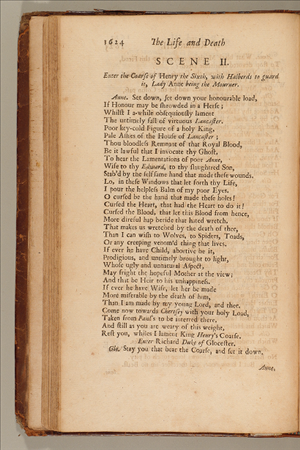 1624 The Life and Death
SCENE II.
Enter the Coarse of Henry the Sixth, with Halberds to guard
it, Lady Anne being the Mourner.
Anne. Set down, set down your honourable load,
If Honour may be shrowded in a Herse;
Whilst I a-while obsequiously lament
Th' untimely fall of virtuous Lancaster.
Poor key-cold Figure of a holy King,
Pale Ashes of the House of Lancaster;
Thou bloodless Remnant of that Royal Blood,
Be it lawful that I invocate thy Ghost,
To hear the Lamentations of poor Anne,
Wife to thy Edward, to thy slaughtred Son,
Stab'd by the self same hand that made these wounds.
Lo, in these Windows that let forth thy Life,
I pour the helpless Balm of my poor Eyes.
O cursed be the hand that made these holes!
Cursed the Heart, that had the Heart to do it!
Cursed the Blood, that let this Blood from hence,
More direful hap betide that hated wretch,
That makes us wretched by the death of thee,
Than I can wish to Wolves, to Spiders, Toads,
Or any creeping venom'd thing that lives.
If ever he have Child, abortive be it,
Prodigious, and untimely brought to light,
Whose ugly and unnatural Aspect,
May fright the hopeful Mother at the view;
And that be Heir to his unhappiness.
If ever he have Wife, let her be made
More miserable by the death of him,
Than I am made by my young Lord, and thee.
Come now towards Chertsey with your holy Load,
Taken from Paul's to be interred there.
And still as you are weary of this weight,
Rest you, whiles I lament King Henry's Coarse.
Enter Richard Duke of Glocester.
Glo. Stay you that bear the Coarse, and set it down.
Anne.